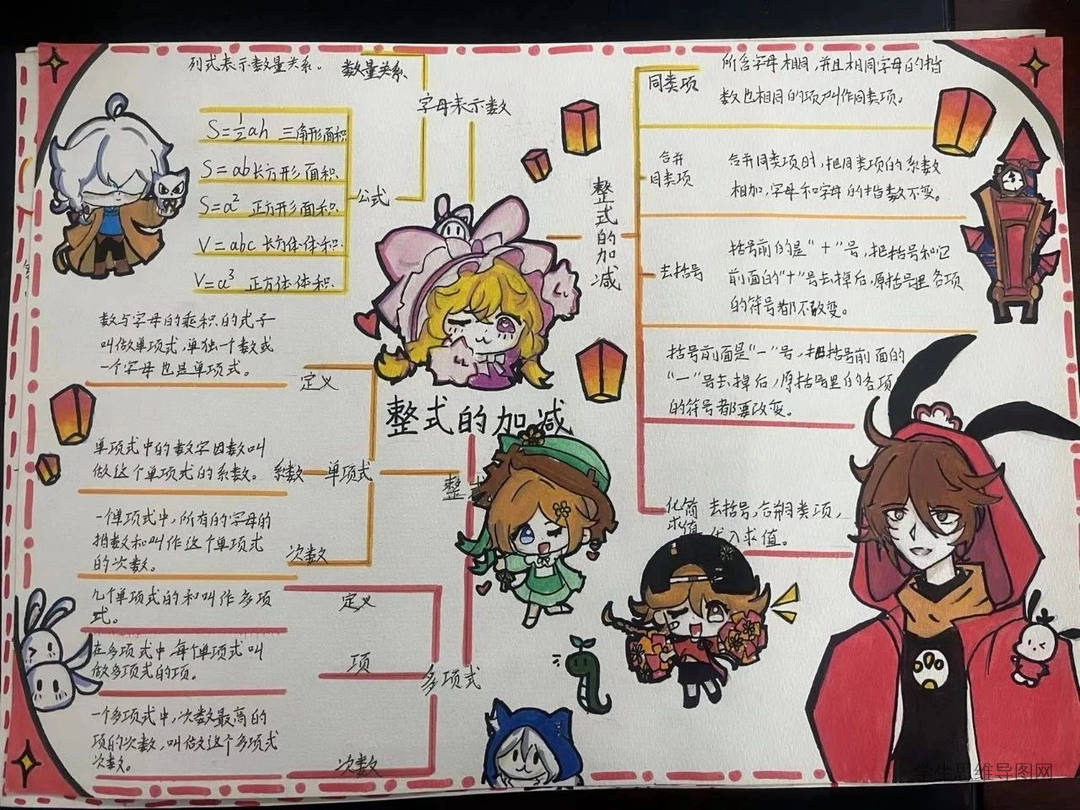 列式表示数量关系。
数量关系
字母表示数
S=½ah 三角形面积
S=ab长方形面积
S=a² 正方形面积
V=abc 长方体体积
V=a³ 正方体体积
公式
数与字母的乘积的式子
叫做单项式,单独一个数或
一个字母也是单项式。
定义
单项式中的数字因数叫
做这个单项式的系数。
系数
单项式
一个单项式中,所有的字母的
指数和叫作这个单项式
的次数。
次数
整式的加减
整式
几个单项式的和叫作多项
式。
定义
在多项式中每个单项式叫
做多项式的项。
项
多项式
一个多项式中,次数最高的
项的次数,叫做这个多项式
次数。
次数
整式的加减
同类项
所含字母相同,并且相同字母的指
数也相同的项叫作同类项。
合并
同类项
合并同类项时,把同类项的系数
相加,字母和字母的指数不变。
去括号
括号前的是“+”号,把括号和它
前面的“+”号去掉后,原括号里各项
的符号都不改变。
括号前面是“-”号,把括号前面的
“-”号去掉后,原括号里的各项
的符号都要改变。
化简
求值
去括号,合并同类项,
代入求值。
学生思维导图网